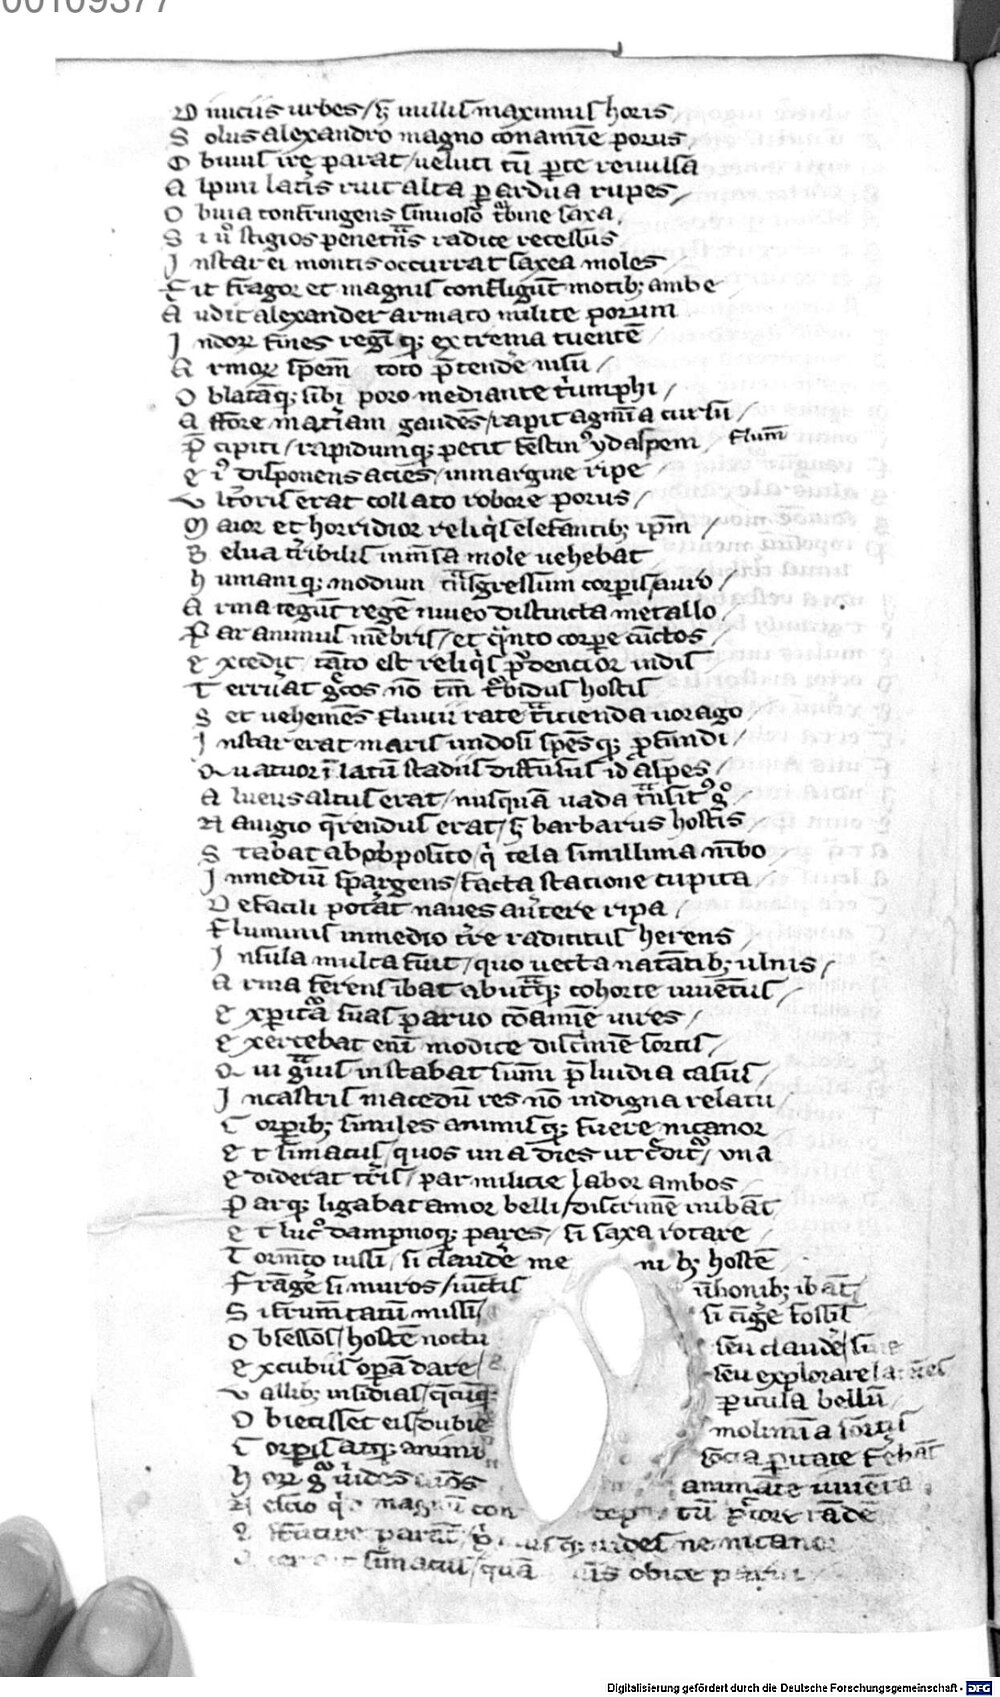 00109377
M uniciis urbes / s; nullis maximus horis
S olus alexandro magno conamine porus
O buius ire parat / ueluti cum parte reuulsa
A lpini lateris ruit alta per ardua rupes
O buia confringens sinuoso turbine saxa
S i uero stigios penetrans radice recessus
I nstar ei montis occurrat saxea moles
F it fragor et magnis confligunt motib; ambe
A udit alexander armato milite porum
I ndorum fines regni q; extrema tuentem
A rmorum spem toto pretendere nisu /
O blatamq; sibi poro mediante triumphi /
A ffore materiam gaudens / rapit agmina cursu
P cipiti / rapidumq; petit festinus ydaspem / flumen
C ius disponens acies / in margine ripe
V lterioris erat collato robore porus
M aior et horridior reliquis elefantib; ipsum /
B elua terribilis inmensa mole uehebat
H umaniq; modum transgressum corpus / auro
A rma tegunt regem niueo distincta metallo
P ar animus membris / et quanto corpore cunctos
E xcedit / tanto est reliquis prudencior indis
T erruat grecos non tantum turbidus hostis
S et uehemens fluuii rate traicienda uorago
I nstar erat maris undosi speciesq; profundi /
Q uatuor in latum stadiis diffusus idaspes /
A lueus altus erat / nusquam uada transit ergo
N auigio querendus erat / s; barbarus hostis
S tabat ab opposito / qui tela simillima nimbo
I nmedium spargens / facta statione cupita
D efacili poterat naues auertere ripa /
F luminis inmedio terre radicitus herens
I nsula multa fuit / quo uecta natantib; ulnis /
A rma ferens ibat abutraq; cohorte iuuentus /
E xperitura suas paruo conamine uires /
E xercebat enim modice discrimine sortis /
Q ui grauius instabat summi preludia casus /
I ncastris macedum res non indigna relatu
C orporib; similes animisq; fuere nicanor
E t simacus / quos una dies ut creditur / una
E diderat terris / par milicie labor ambos
P arq; ligabat amor belli / discrimine inibant
E t lucro dampnoq; pares / si saxa rotare
T ormento iussi / si claudere me ni b; hostem
F rangere si muros / iunctis unbonib; ibant
S i frumentatum missi si cingere fossis
O bsessos / hostem noctu seu claudere / sine
E xcubiis operam dare / seu explorare
V allib; insidias / pericula bellum
O biecisset eis / dubie molimina sortis
C orporis atq; animi
H orum uides animate iuuenta
N escio magnum con tum
nicanor
simacus / quam obice
Digitalisierung gefördert durch die Deutsche Forschungsgemeinschaft - DFG